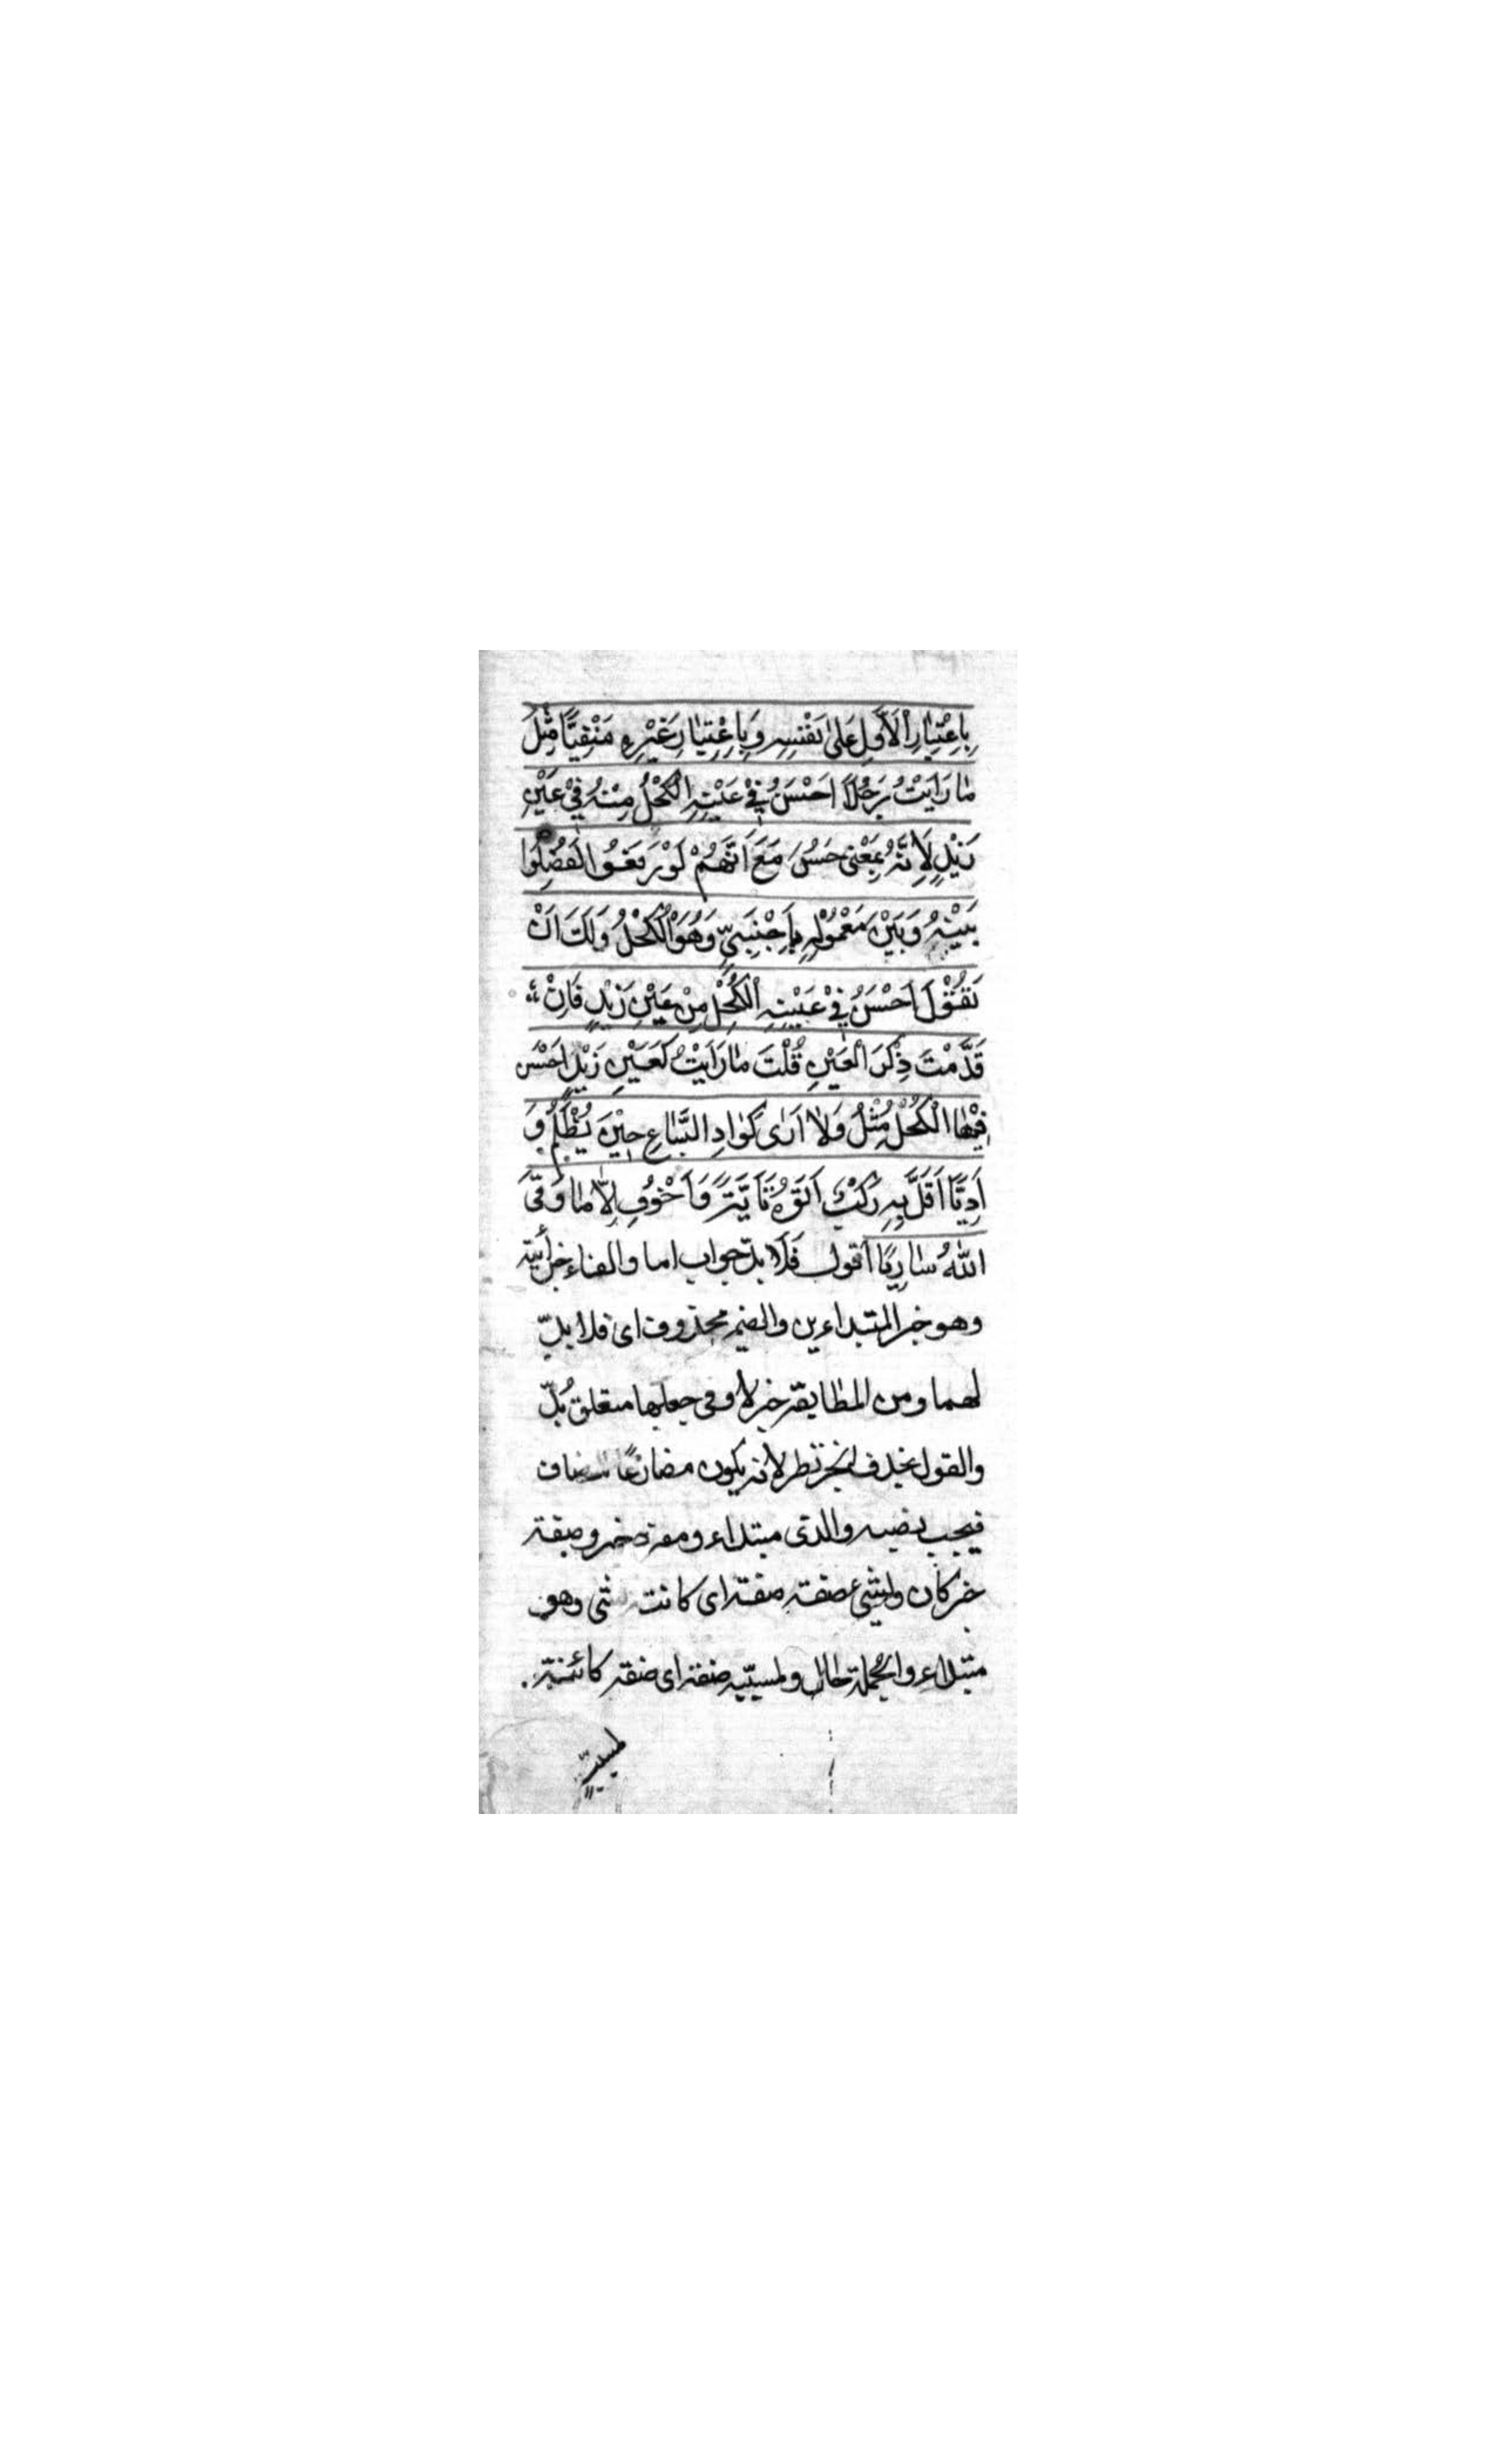 بِاعْتِبَارِ الْاَوَّلِ عَلىٰ نَفْسِهِ وَبِاِعْتِبَارِ غَيْرِهٖ مَنْفِيًّا مِثْلُ
مٰا رَاَيْتُ رَجُلًا اَحْسَنُ فِيْ عَيْنِهِ الْكُحْلُ مِنْهُ فِيْ عَيْنِ
زَيْدٍ لِاَنَّهُ بِمَعْنٰى حَسُنَ مَعَ اَنَّهُمْ لَوْ رَفَعُوْا لَفَصَلُوْا
بَيْنَهُ وَبَيْنَ مَعْمُوْلِهِ بِاَجْنَبِيٍّ وَهُوَ الْكُحْلُ وَلَكَ اَنْ
تَقُوْلَ اَحْسَنُ فِيْ عَيْنِهِ الْكُحْلُ مِنْ عَيْنِ زَيْدٍ فَاِنْ
قَدَّمْتَ ذِكْرَ الْعَيْنِ قُلْتَ مٰا رَاَيْتُ كَعَيْنِ زَيْدٍ اَحْسَنَ
فِيْهَا الْكُحْلُ مِثْلُ وَلٰا اَرٰى كَوٰادِ السِّبٰاعِ حِيْنَ يُظْلِمُ وَ
اَدِيًّا اَقَلَّ بِهِ رَكْبٌ اَتَوْهُ تَاَيَّةً وَاَخْوَفَ اِلّٰا مٰا وَقَى
اللّٰهُ سٰارِيًا اقول فَلَا بدّ جواب اما والفاء جزائية
وهو خبر المبتداءين والضمير محذوف اى فلا بدّ
لهما ومن المطابقة خبر لا وفى جعلها متعلق بُدّ
والقول بحذف الخبر نظر لانه يكون مضارعًا للمضاف
فيجب نصبه والذى مبتداء ومفرد خبر وصفة
خبر كان ولشئ صفة صفة اى كانت لشئ وهو
مبتداء والجملة حال ولمسبّبه صفة اى صفة كائنة
لمسبّبٍ